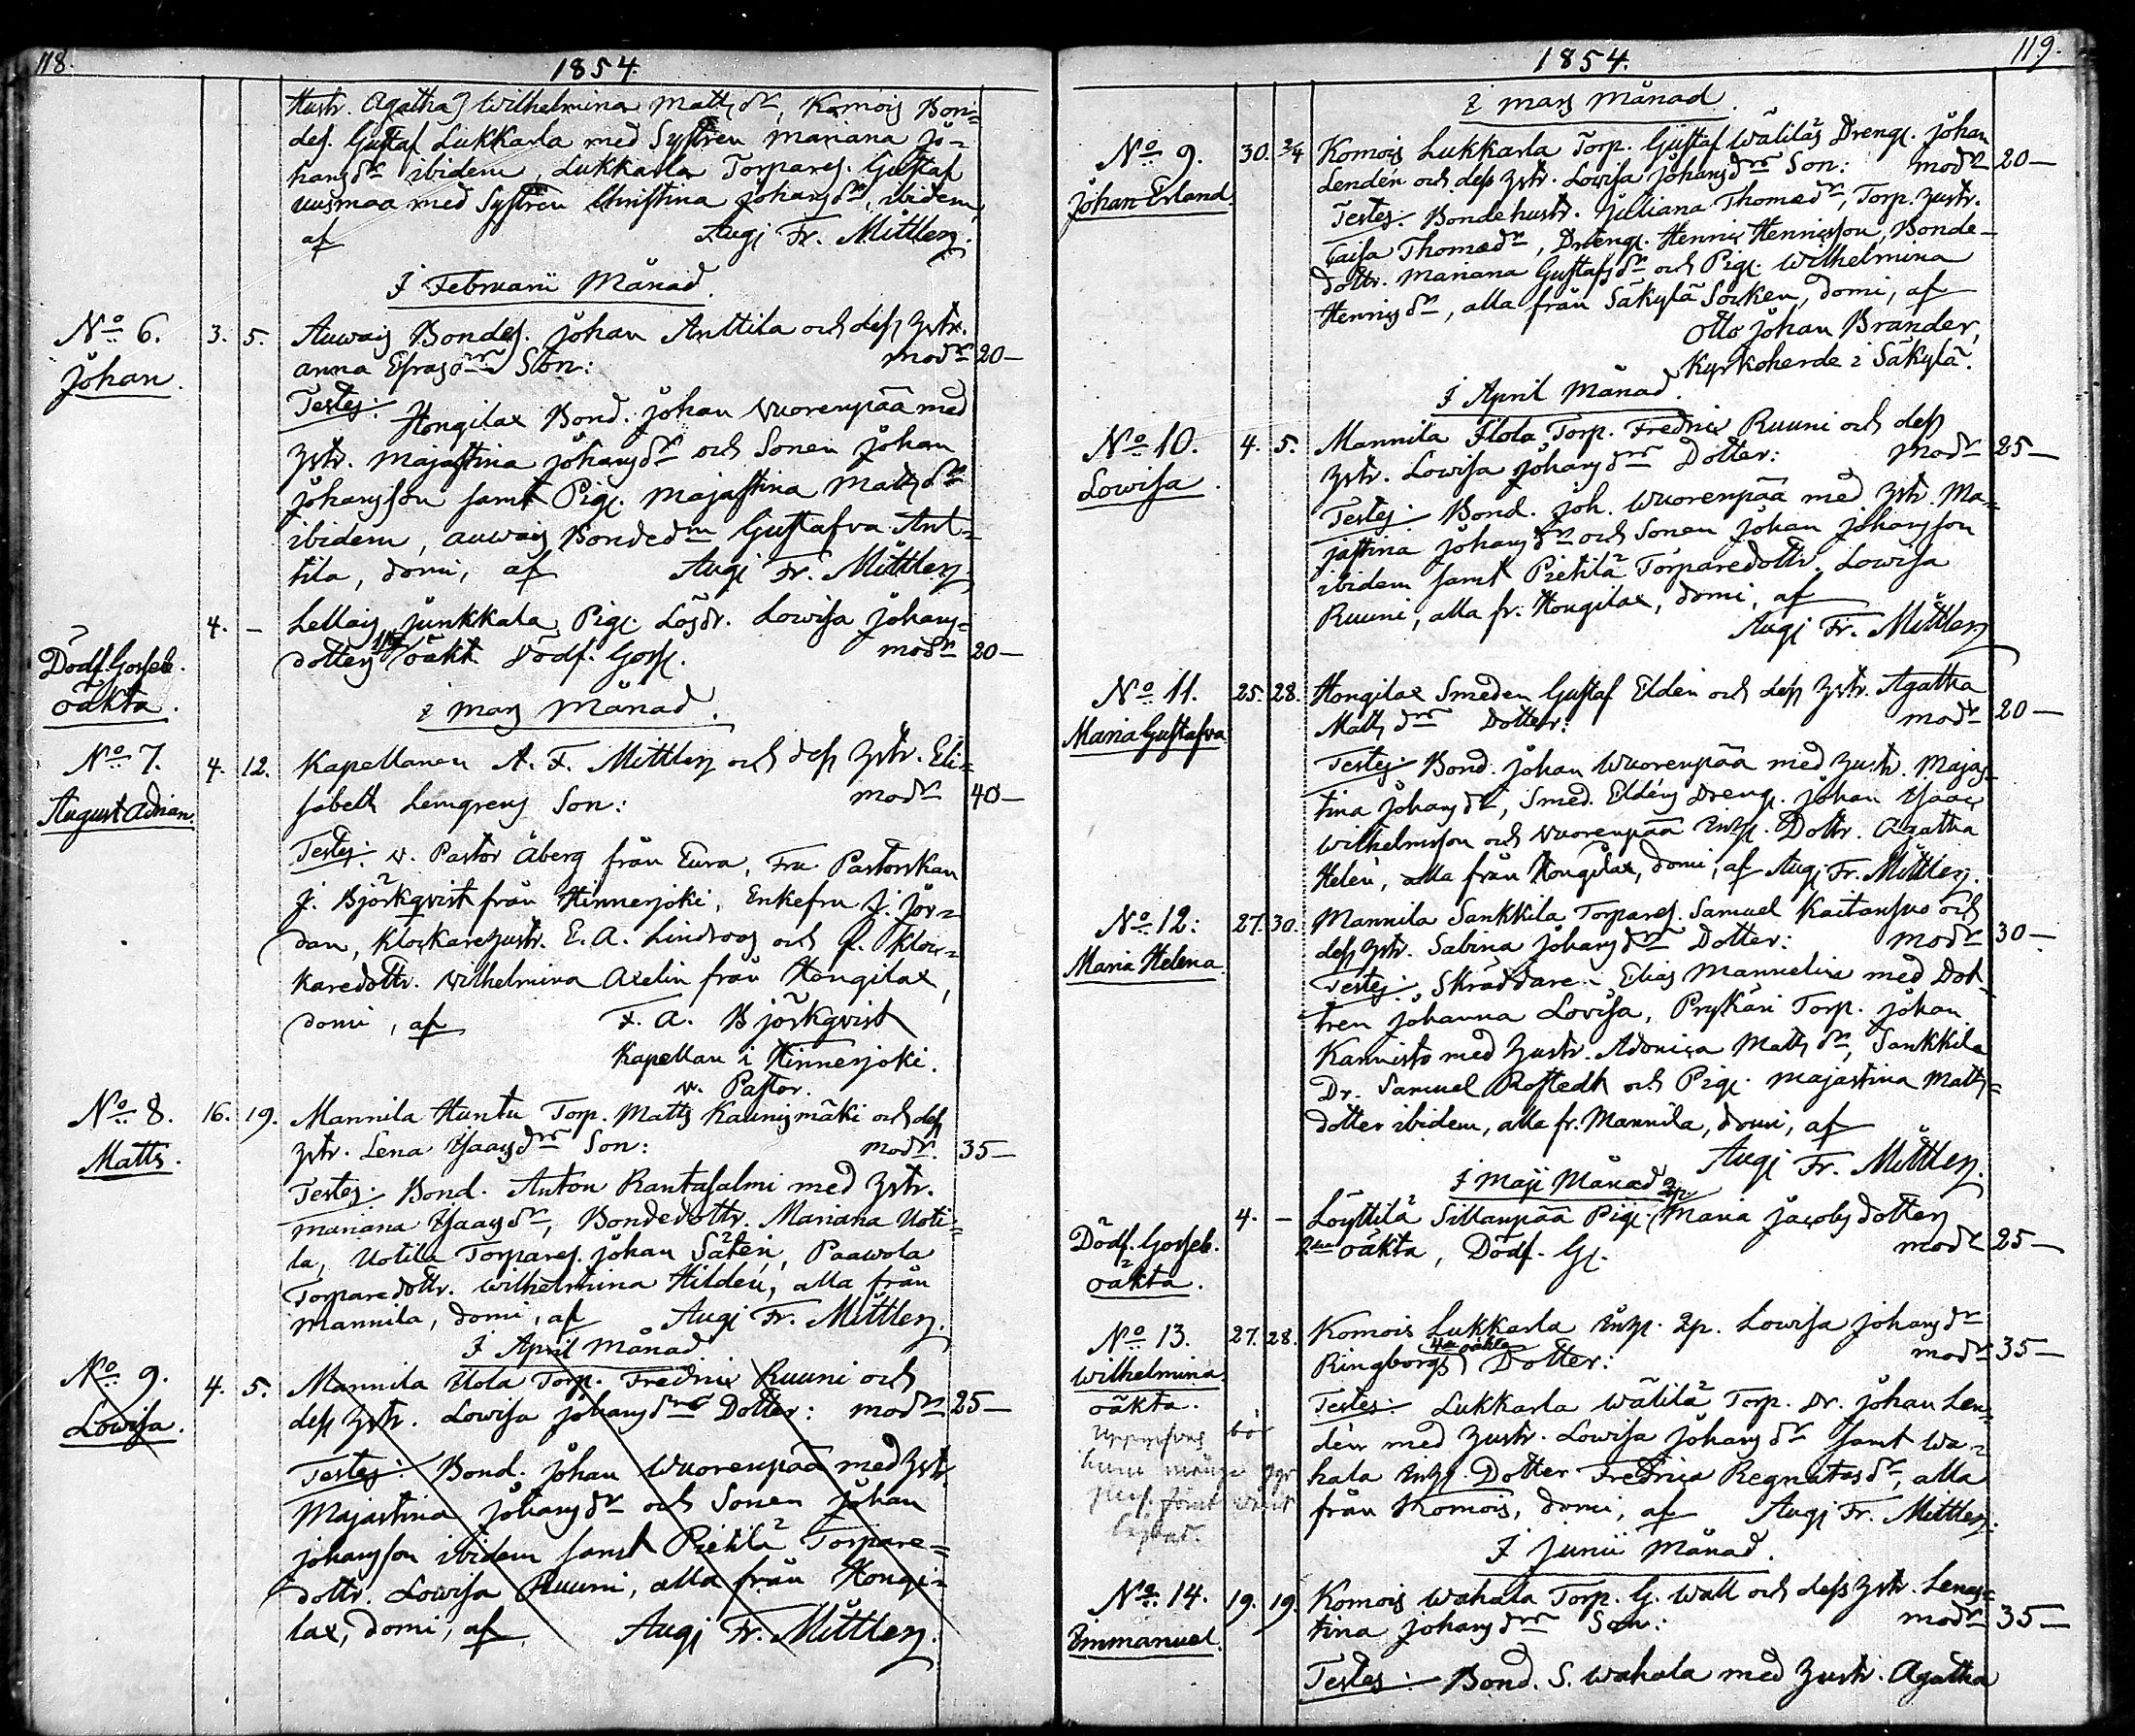 118.
1854.
Hustr. Agatha Wilhelmina Mattsdr, Komois Bon=
des. Gustaf Lukkarla med Systren Mariana Jo=
hansdr ibidem, Lukkarla Torpares. Gustaf
Uusmaa med Systren Christina Johansdr, ibidem,
af Augs Fr. Mittler.
I Februarii Månad.
No 6. 3. 5. Auwais Bondes. Johan Anttila och dess hstr.
Johan. Anna Efrasdrs Son: modr 20—
Testes: Hongilax Bond. Johan Wuorenpää med
hstr. Majastina Johansdr och Sonen Johan
Johansson samt Pig. Majastina Mattsdr
ibidem, Auwais Bondedm Gustafva Ant=
tila, domi, af Augs Fr. Mittler.
4. — Lellais Junkkala Pig. Lösdr. Lowisa Johans=
Dödf. Gosseb. dotters oäkt. Dödf. Goss. modr 20—
oäkta.
I Mars Månad.
No 7. 4. 12. Kapellanen A. F. Mittler och dess hstr. Eli=
August Adrian. sabeth Lemgrens Son: modr 40—
Testes: v. Pastor Åberg från Eura, Fru Pastorskan
J. Björkqvist från Hinnerjoki, Enkefru J. Jor=
dan, Klockarehustr. E. A. Lindroos och Kloc=
karedottr. Wilhelmina Axelin från Hongilax,
domi, af F. A. Björkqvist
Kapellan i Hinnerjoki.
v. Pastor.
No 8. 16. 19. Mannila Huntu Torp. Matts Kaunismäki och dess
Matts. hstr. Lena Isaacsdrs Son: modr. 35—
Testes: Bond. Anton Rantasalmi med hstr.
Mariana Isaacsdr, Bondedottr. Mariana Uoti=
la, Uotila Torpares. Johan Säten, Paawola
Torparedottr. Wilhelmina Hildén, alla från
Mannila, domi, af Augs Fr. Mittler.
I April Månad
No 9. 4. 5. Mannila Ilola Torp. Fredric Ruuni och
Lowisa. dess hstr. Lowisa Johansdrs Dotter: modr 25—
Testes: Bond. Johan Wuorenpää med hstr.
Majastina Johansdr och Sonen Johan
Johansson ibidem samt Pietilä Torpare=
dottr. Lowisa Ruuni, alla från Hongi=
lax, domi, af Augs Fr. Mittler.
1854.
119.
I Mars Månad.
No 9. 30. 2/4 Komois Lukkarla Torp. Gustaf Wäliläs Drengs. Johan
Johan Erland. Lendén och dess hstr. Lowisa Johansdrs Son: modr 20—
Testes: Bondehustr. Juliana Thomædr, Torp. hustr.
Caisa Thomædr, Drengs. Henric Henricsson, Bonde-
dottr. Mariana Gustafsdr och Pig. Wilhelmina
Henricsdr, alla från Säkylä Socken, domi, af
Otto Johan Brander,
Kyrkoherde i Säkylä.
I April Månad.
No 10. 4. 5. Mannila Ilola Torp. Fredric Ruuni och dess
Lowisa. hstr. Lowisa Johansdrs Dotter: modr 25—
Testes: Bond. Joh. Wuorenpää med hstr. Ma=
jastina Johansdr och Sonen Johan Johansson
ibidem samt Pietilä Torparedottr. Lowisa
Ruuni, alla fr. Hongilax, domi, af
Augs Fr. Mittler
No 11. 25. 28. Hongilax Smeden Gustaf Eldén och dess hstr. Agatha
Maria Gustafva Mattsdrs Dotter: modr 20—
Testes: Bond. Johan Wuorenpää med hustr. Majas=
tina Johansdr, Smed. Eldéns Dreng. Johan Isaac
Wilhelmsson och Wuorenpää Inhs. Dottr. Agatha
Helén, alla från Hongilax, domi, af Augs Fr. Mittler.
No 12: 27. 30. Mannila Sankkila Torpares. Samuel Kaitansuo och
dess hstr. Sabina Johansdrs Dotter: modr 30—
Maria Helena. Testes: Skräddare Elias Mannelin med Dot=
tren Johanna Lovisa, Prykäri Torp. Johan
Kannisto med hustr. Adonica Mattsdr, Sankkila
Dr. Samuel Rostedt och Pig. Majastina Matts=
dotter ibidem, alla fr. Mannila, domi, af
Augs Fr. Mittler.
I Maji Månad
4. — Löyttilä Sillanpää Pig. Maria Jacobsdotters
Dödf. Gosseb. 2dra oäkta, Dödf. G. modr 25—
oäkta.
No 13. 27. 28. Komois Lukkarla Inhs. 2p. Lowisa Johansdr
Wilhelmina. Ringborgs 4de oäkta Dotter: modr 35—
oäkta. Testes: Lukkarla Wälilä Torp. Dr. Johan Len=
dén med hustr. Lowisa Johansdr samt Wa=
hala Inhs. Dotter Fredrica Regnatesdr, alla
från Komois, domi, af Augs Fr. Mittler.
I Junii Månad.
No. 14. 19. 19. Komois Wahala Torp. G. Wall och dess hstr. Lenas=
Immanuel. tina Johansdrs Son: modr 35—
Testes: Bond. S. Wahala med hustr. Agatha